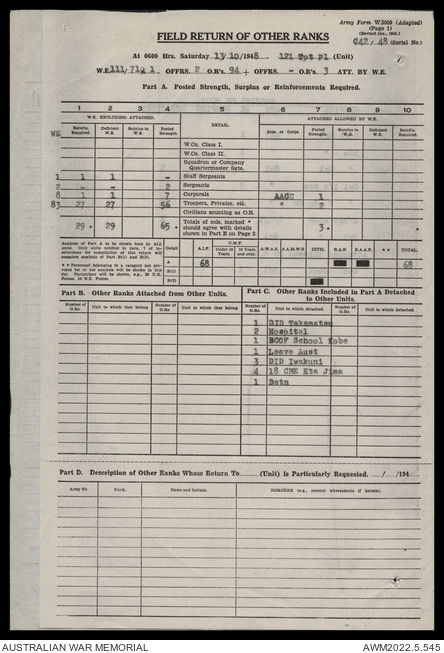 Army Form W.3009 (Adapted)
(Page 1)
(Revised Jan., 1945.)
G42/48 (Serial No.)
FIELD RETURN OF OTHER RANKS
At 0600 Hrs. Saturday 13/10/1948. 121 Tpt Pl (Unit)
W.E. 111/712 1. OFFRS. 2 O.R's. 94 + OFFRS. - O.R's. 3 ATT. BY W.E.
Part A. Posted Strength, Surplus or Reinforcements Required.
1 2 3 4 5 6 7 8 9 10
W.E. EXCLUDING ATTACHED. ATTACHED ALLOWED BY W.E.
WE Reinfts. Required. Deficient W.E. Surplus to W.E. Posted Strength. DETAIL. Arms or Corps. Posted Strength. Surplus to W.E. Deficient W.E. * * Reinfts. Required.
W.Os. Class I.
W.Os. Class II.
Squadron or Company Quartermaster Sgts.
1 1 1 - Staff Sergeants
2 - - 2 Sergeants
8 1 1 7 Corporals AACC 1
83 27 27 56 Troopers, Privates, etc. " 2
Civilians counting as O.R.
29 * 29 65 * Totals of cols. marked * should agree with details shown in Part E on Page 2. 3 *
Analysis of Part A to be shown here by ALL units. Detail A.I.F. C.M.F. Under 19 years. 19 Years and over. A.W.A.S. A.A.M.W.S. CIVIL R.A.N. R.A.A.F. * * TOTAL.
A 68 68
B(1)
B(2)
Part B. Other Ranks Attached from Other Units.
Part C. Other Ranks Included in Part A Detached to Other Units.
Number of O.Rs. Unit to which they belong Number of O.Rs. Unit to which they belong Number of O.Rs. Unit to which detached. Number of O.Rs. Unit to which detached.
1 DID Takamatsu
2 Hospital
1 BCOF School Kobe
1 Leave Aust
3 DID Iwakuni
4 18 CRE Eta Jima
1 Detn
Part D. Description of Other Ranks Whose Return To (Unit) is Particularly Requested. / /194
Army No Rank. Name and Initials. REMARKS (e.g., present whereabouts if known).
AUSTRALIAN WAR MEMORIAL
AWM2022.5.545